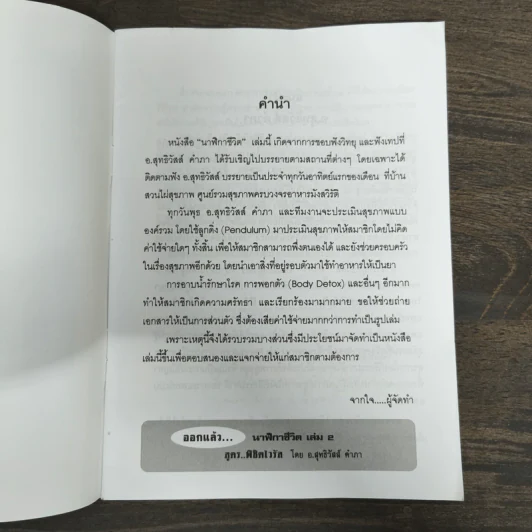 คำนำ
หนังสือ "นาฬิกาชีวิต" เล่มนี้ เกิดจากการชอบฟังวิทยุ และฟังเทปที่
อ.สุทธิวัสส์ คำภา ได้รับเชิญไปบรรยายตามสถานที่ต่างๆ โดยเฉพาะได้
ติดตามฟัง อ.สุทธิวัสส์ บรรยายเป็นประจำทุกวันอาทิตย์แรกของเดือน ที่บ้าน
สวนไผ่สุขภาพ ศูนย์รวมสุขภาพครบวงจรอาหารมังสวิรัติ
ทุกวันพุธ อ.สุทธิวัสส์ คำภา และทีมงานจะประเมินสุขภาพแบบ
องค์รวม โดยใช้ลูกดิ่ง (Pendulum) มาประเมินสุขภาพให้สมาชิกโดยไม่คิด
ค่าใช้จ่ายใดๆ ทั้งสิ้น เพื่อให้สมาชิกสามารถพึ่งตนเองได้ และยังช่วยครอบครัว
ในเรื่องสุขภาพอีกด้วย โดยนำเอาสิ่งที่อยู่รอบตัวมาใช้ทำอาหารให้เป็นยา
การอาบน้ำรักษาโรค การพอกตัว (Body Detox) และอื่นๆ อีกมาก
ทำให้สมาชิกเกิดความศรัทธา และเรียกร้องมามากมาย ขอให้ช่วยถ่าย
เอกสารให้เป็นการส่วนตัว ซึ่งต้องเสียค่าใช้จ่ายมากกว่าการทำเป็นรูปเล่ม
เพราะเหตุนี้จึงได้รวบรวมบางส่วนซึ่งมีประโยชน์มาจัดทำเป็นหนังสือ
เล่มนี้ขึ้นเพื่อตอบสนองและแจกจ่ายให้แก่สมาชิกตามต้องการ
จากใจ.....ผู้จัดทำ
ออกแล้ว... นาฬิกาชีวิต เล่ม ๒
สูตร..พิชิตไวรัส โดย อ.สุทธิวัสส์ คำภา